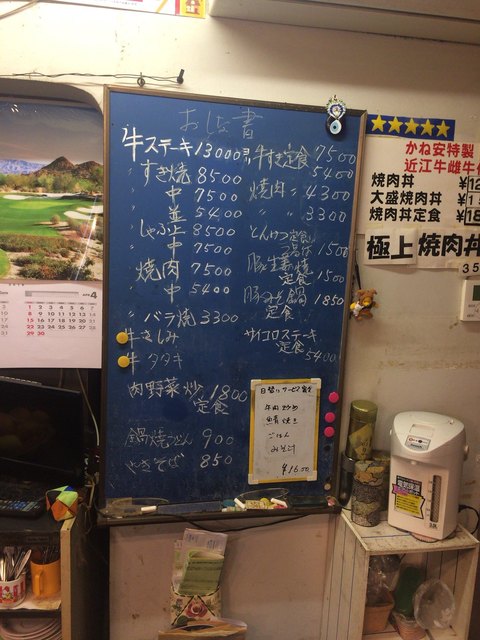 おしな書
牛ステーキ 13000ヨリ
〃 すき焼 8500
〃 中 7500
〃 並 5400
〃 しゃぶ上 8500
〃 中 7500
〃 焼肉 7500
〃 中 5400
〃 バラ焼 3300
牛さしみ
牛タタキ
肉野菜炒 1800
定食
鍋焼うどん 900
やきそば 850
牛すき定食 7500
〃 〃 5400
焼肉 〃 4300
〃 〃 3300
とんかつ定食
1500
豚生姜焼 1500
定食
豚みそ鍋 1850
定食
サイコロステーキ
定食 5400
日替りサービス定食
牛肉炒め
ごはん
みそ汁
¥1600
かね安特製
近江牛雌牛
焼肉丼 ¥1
大盛焼肉丼 ¥1
焼肉丼定食 ¥18
極上焼肉丼
35
4
1 2 3 4 5 6 7
8 9 10 11 12 13 14
15 16 17 18 19 20 21
22 23 24 25 26 27 28
29 30